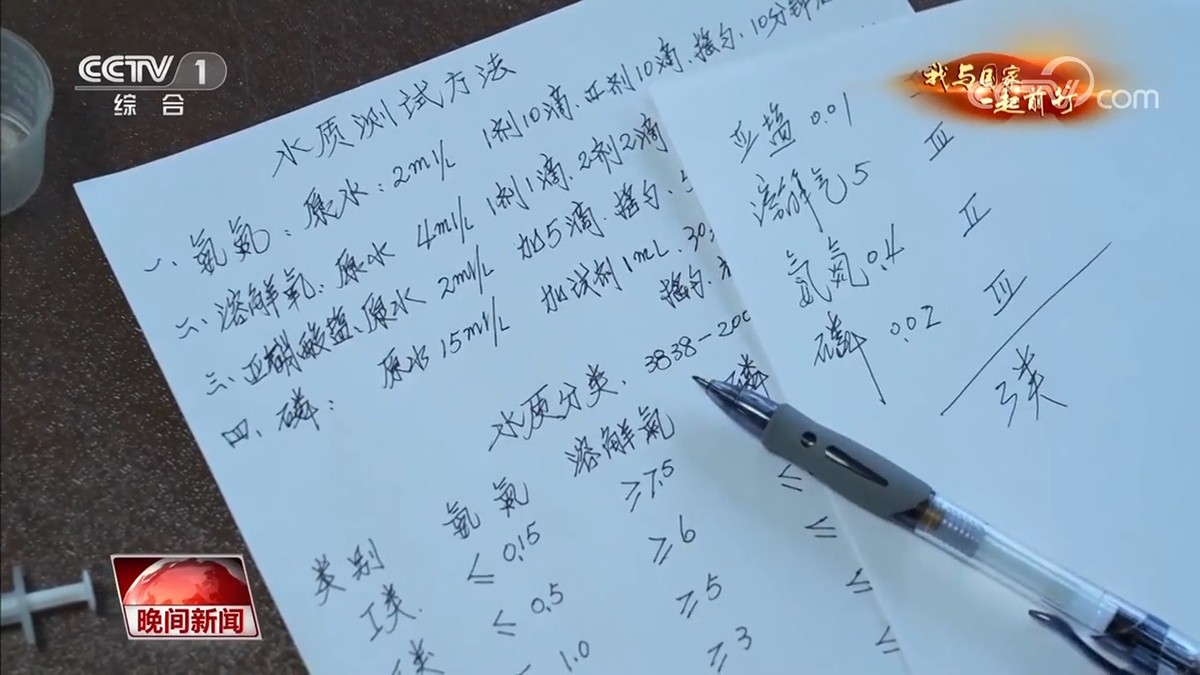 CCTV 1
综合
我与国家
一起前行
com
水质测试方法
一、氨氮:原水:2ml/L 1剂10滴.亚剂10滴.摇匀.10分钟
二、溶解氧:原水 4ml/L 1剂1滴.2剂2滴
三、亚硝酸盐、原水 2ml/L 加5滴.摇匀.
四、磷: 原水15ml/L 加试剂1mL.30
摇匀.
水质分类. 3838-200
类别 氨氮 溶解氧 磷
I类. ≤0.15 ≥7.5 ≤
≤0.5 ≥6 ≤
类 1.0 ≥5 ≤
≥3 ≤
亚盐 0.01 Ⅲ
溶解气5 Ⅲ
氨氮0.4 Ⅱ
磷 0.02 Ⅲ
3类
晚间新闻